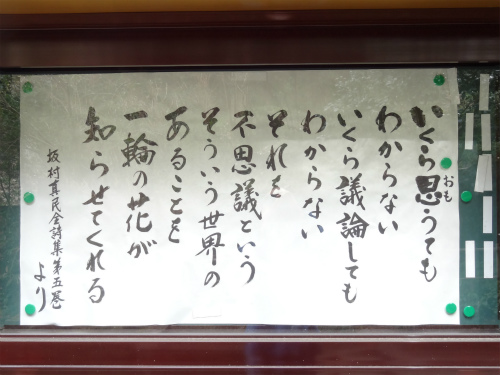 いくら思うても
おも
わからない
いくら議論しても
わからない
それを
不思議という
そういう世界の
あることを
一輪の花が
知らせてくれる
坂村真民全詩集第五巻
より